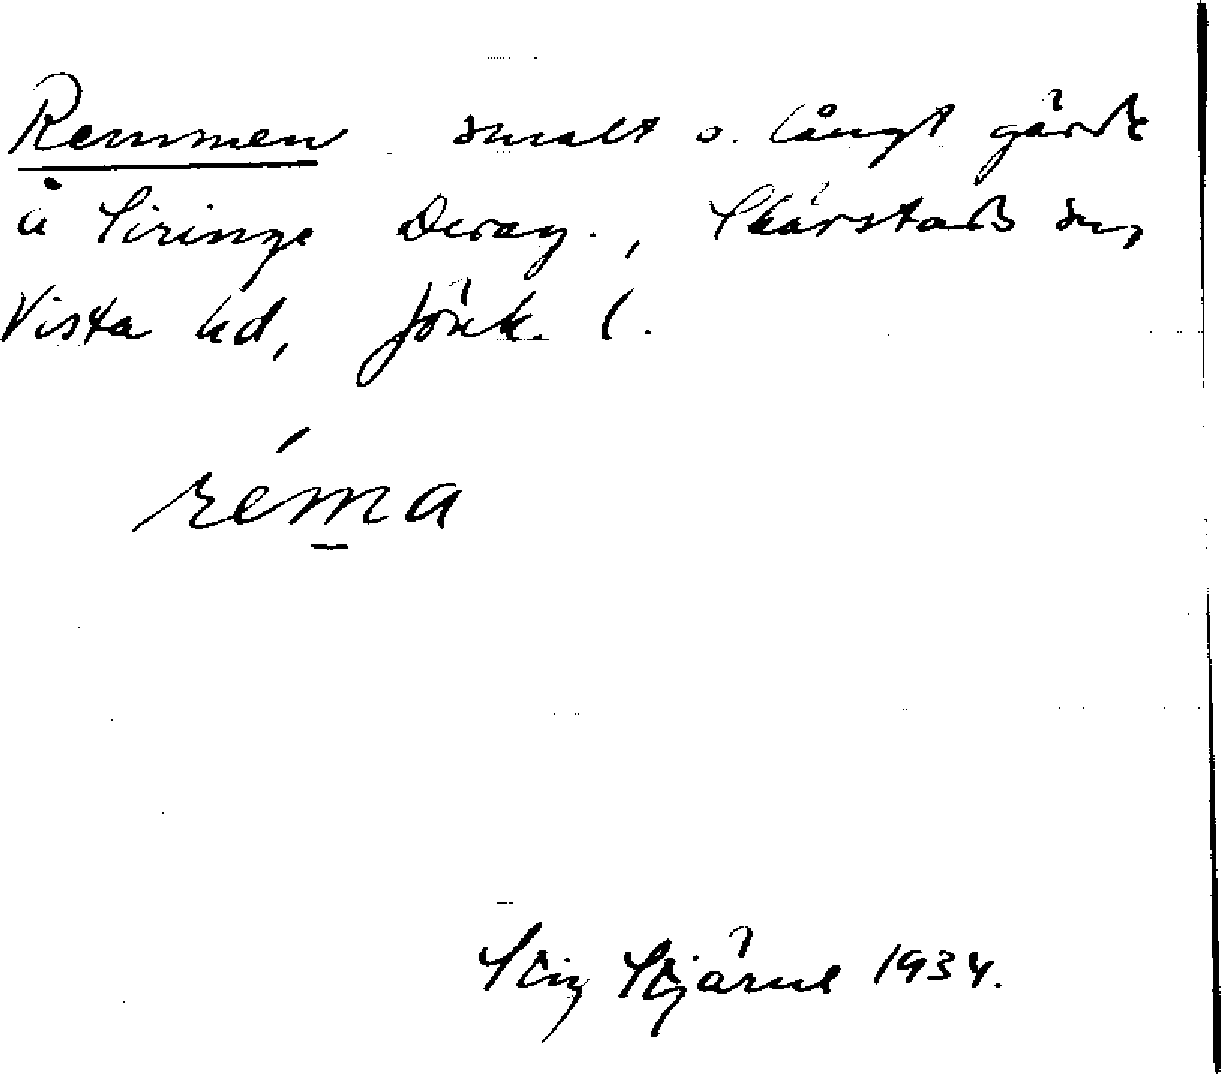 Remmen smalt o. långt gärde
å Siringe Drag., Skärstads sn,
Vista hd, Jönk. l.
réma
Stig Stjärne 1934.